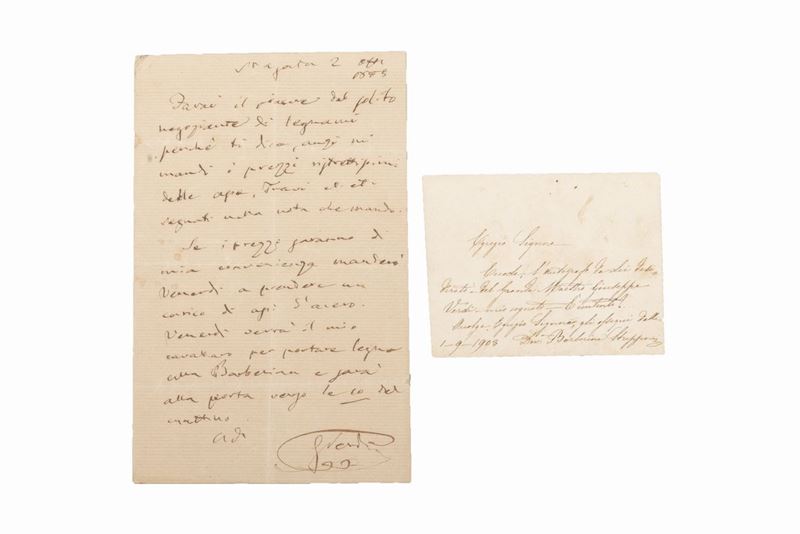 St Agata 2 Ott
1873
Farai il piacere dal solito
negoziante di legnami
perché ti dica, anzi mi
mandi i prezzi ristrettissimi
delle asse, Travi et et
segnati nella nota che mando.
Se i prezzi saranno di
mia convenienza manderò
Venerdì a prendere un
carico di assi d'acero.
Venerdì verrà il mio
cavallaro per portare legna
alla Barberina e sarà
alla porta verso le 10 del
mattino.
Add
G Verdi
Egregio Signore
Eccole l'autografo da Lei
del grande Maestro Giuseppe
Verdi mio cognato. È contento?
Accolga Egregio Signore, gli ossequi della
1-9-1903 Barberina Strepponi